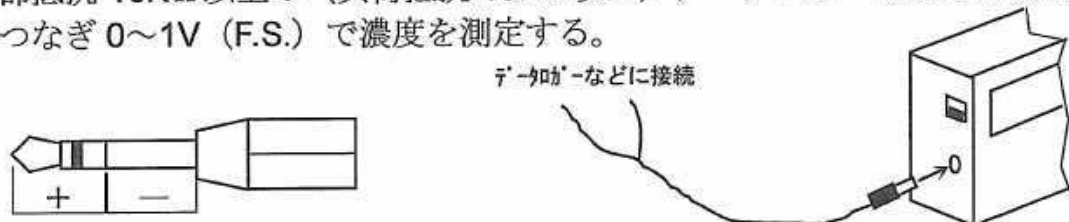 つなぎ 0～1V（F.S.）で濃度を測定する。
ﾃﾞｰﾀﾛｶﾞｰなどに接続
＋ －